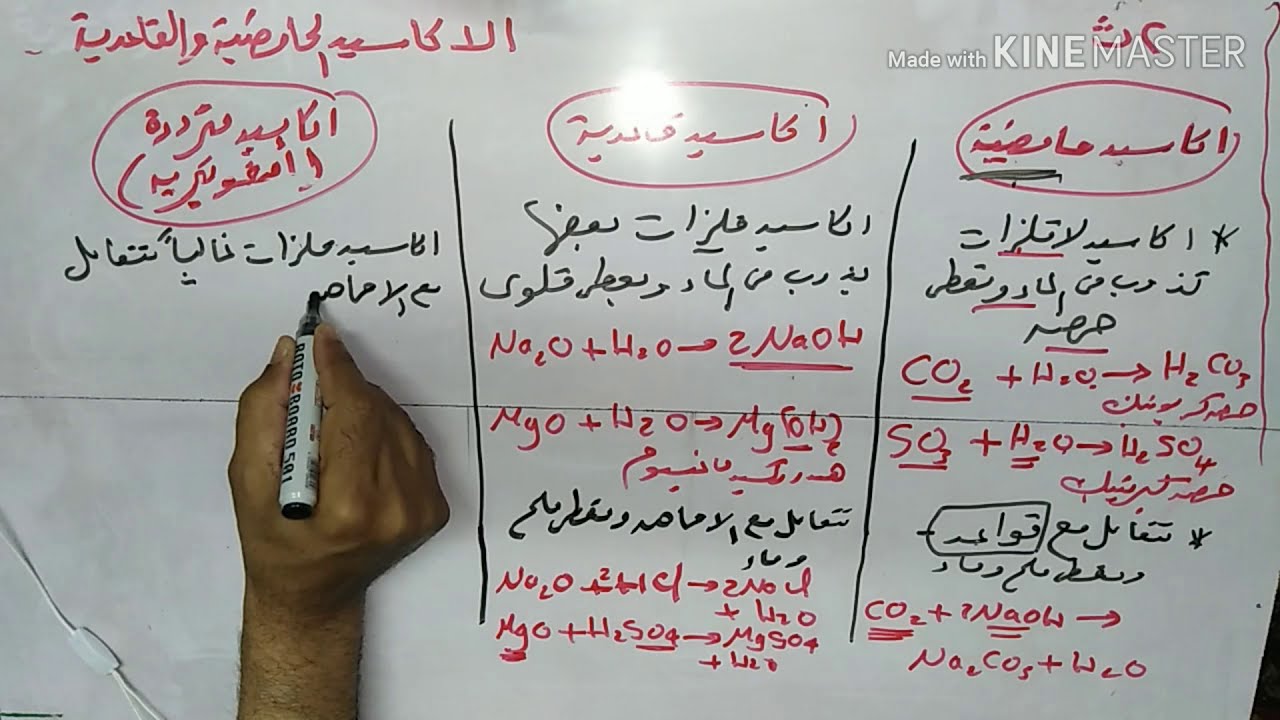 ٢ ث
Made with KINEMASTER
الاكاسيد الحامضية والقاعدية
اكاسيد حامضية
* اكاسيد لافلزات
تذوب فى الماء وتعطى
حمض
CO₂ + H₂O → H₂CO₃
حمض كربونيك
SO₃ + H₂O → H₂SO₄
حمض كبريتيك
* تتفاعل مع قواعد
وتعطى ملح وماء
CO₂ + 2NaOH →
Na₂CO₃ + H₂O
اكاسيد قاعدية
اكاسيد فلزات بعضها
يذوب فى الماء ويعطى قلوى
Na₂O + H₂O → 2NaOH
MgO + H₂O → Mg(OH)₂
هيدروكسيد ماغنسيوم
تتفاعل مع الاحماض وتعطى ملح
وماء
Na₂O + 2HCl → 2NaCl
+ H₂O
MgO + H₂SO₄ → MgSO₄
+ H₂O
اكاسيد مترددة
(امفوتيريه)
اكاسيد فلزات غالباً تتفاعل
مع الاحماض
BOARD